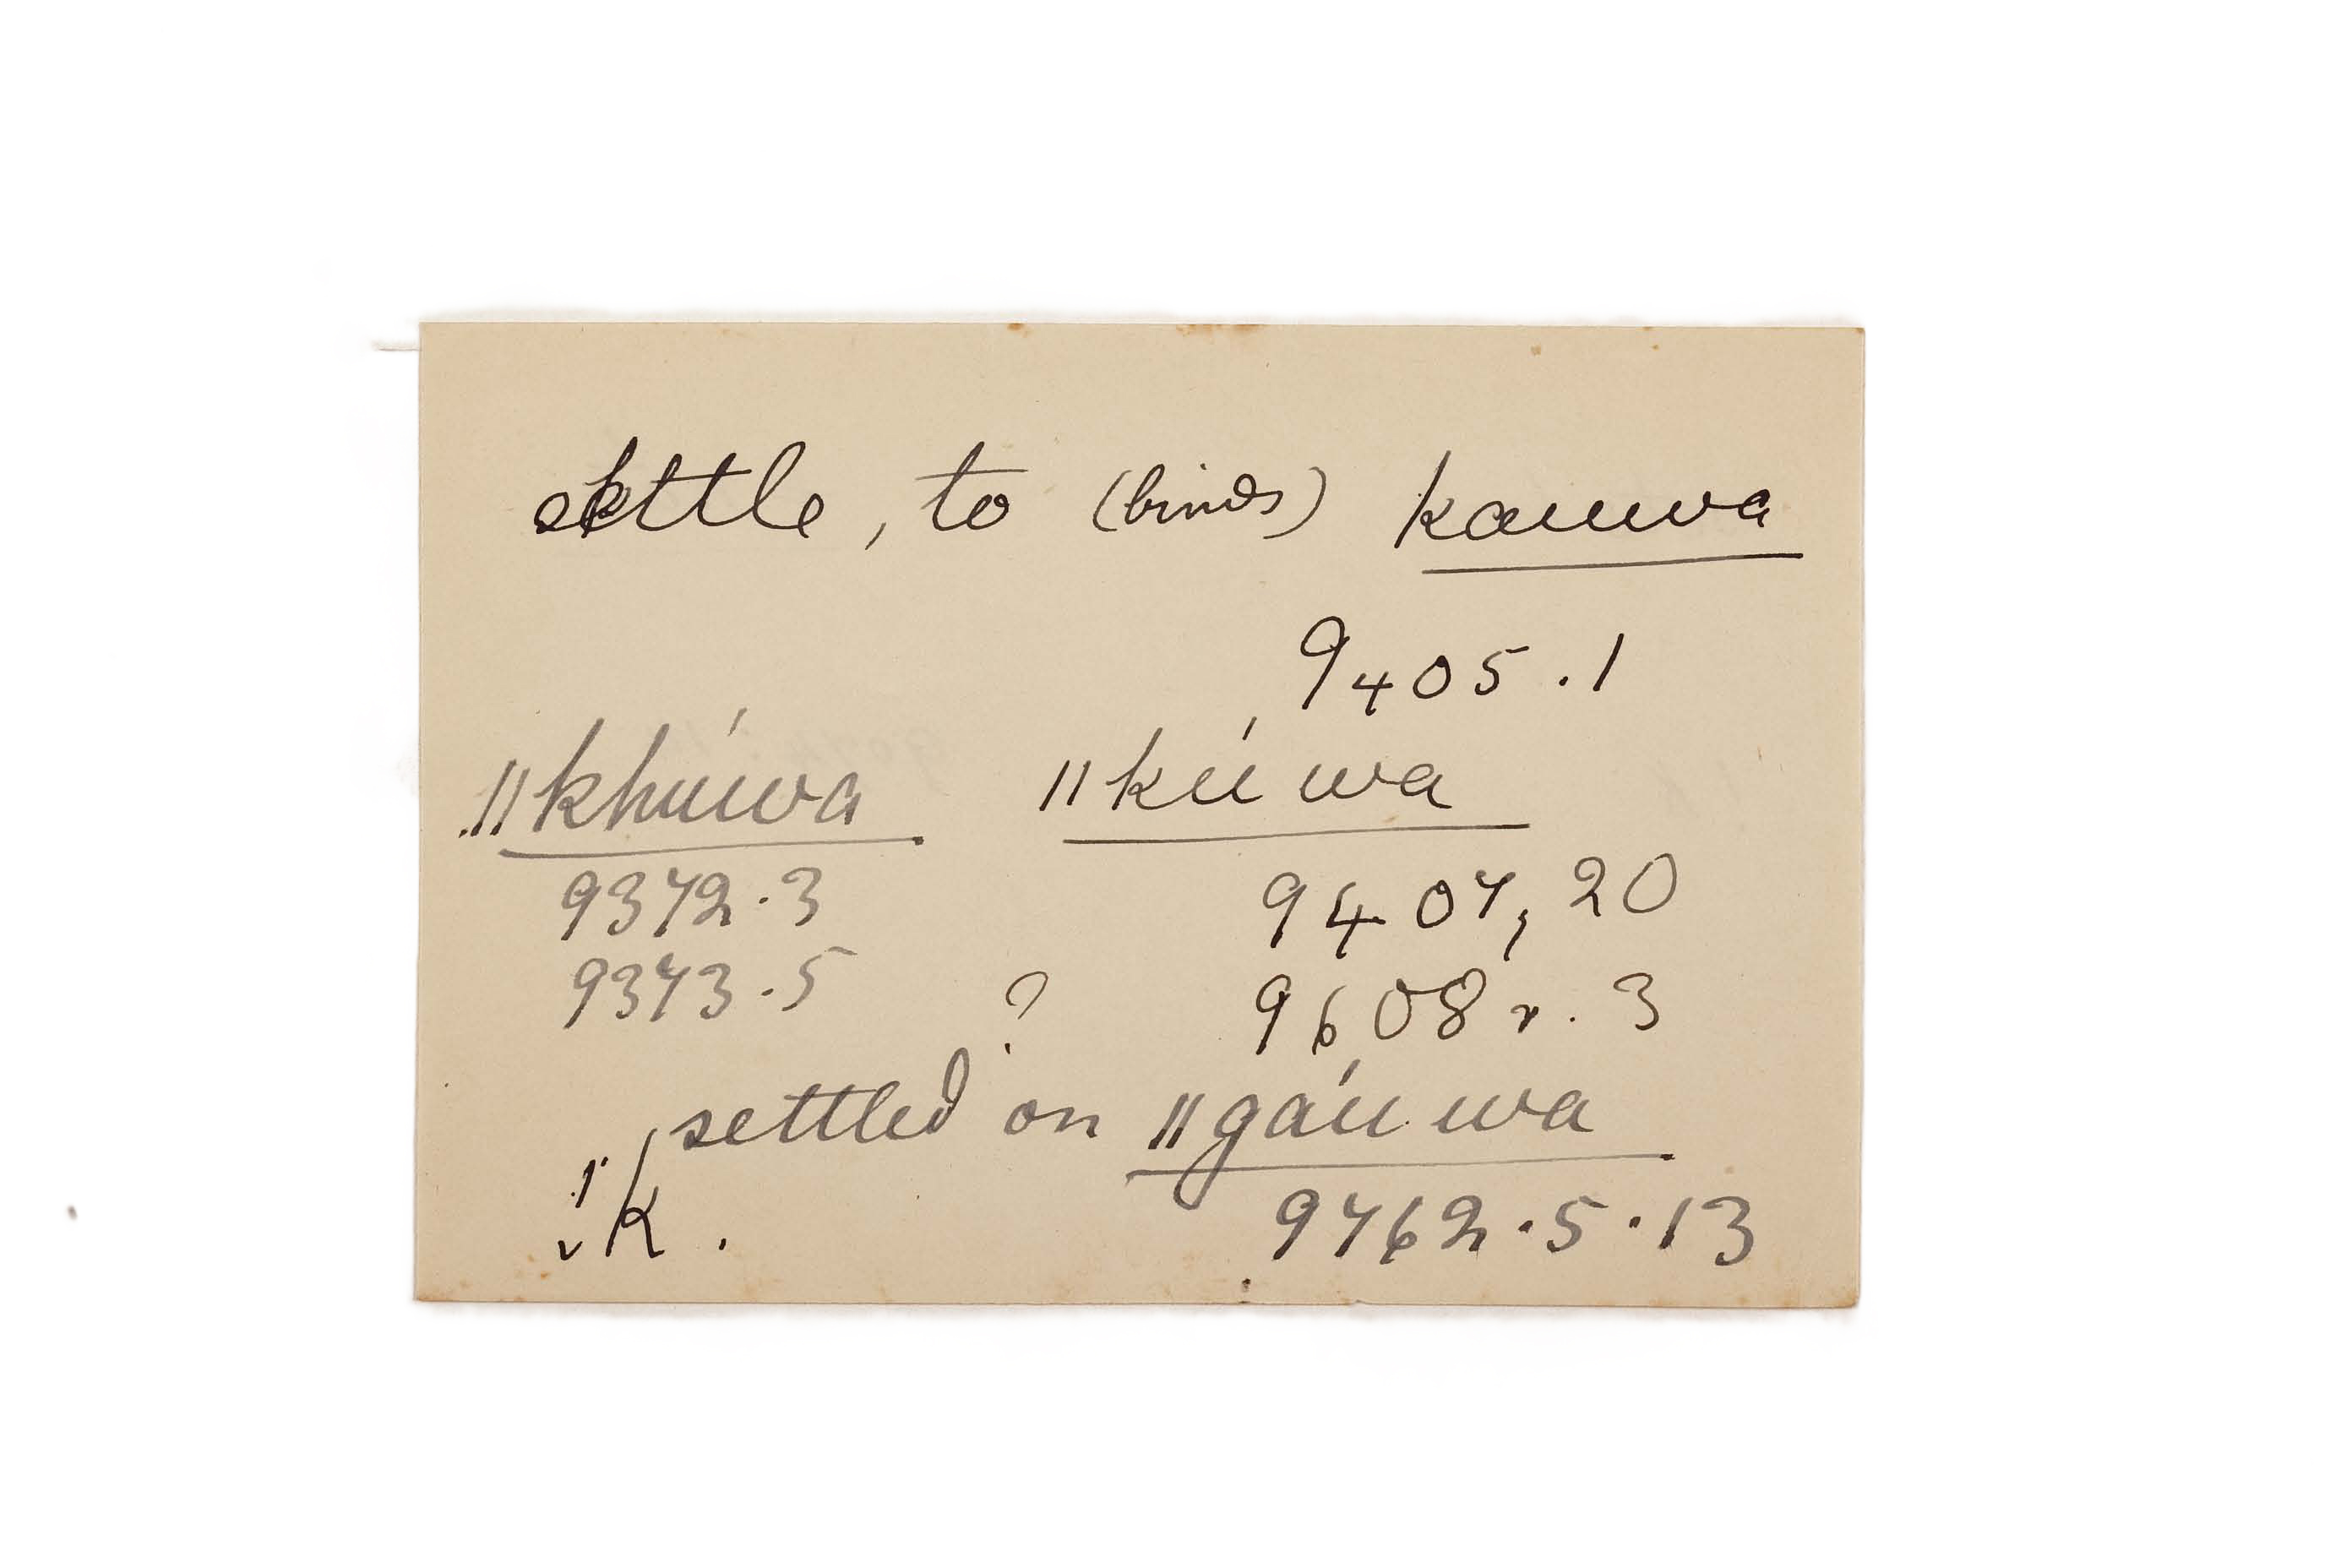 settle, to (birds) kauwa
9405.1
ǁkhúwa ǁkúwa
9372.3 9407, 20
9373.5 ? 9608 r. 3
settled on ǁgáuwa
K. 9762.5.13